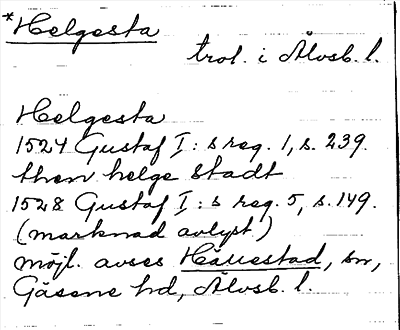 *Helgesta
trol. i Älvsb. l.
Helgesta
1524 Gustaf I: s reg. 1, s. 239.
then helge stadt
1528 Gustaf I: s reg. 5, s. 149.
(marknad avlyst)
möjl. avses Hällestad, sn,
Gäsene hd, Älvsb. l.